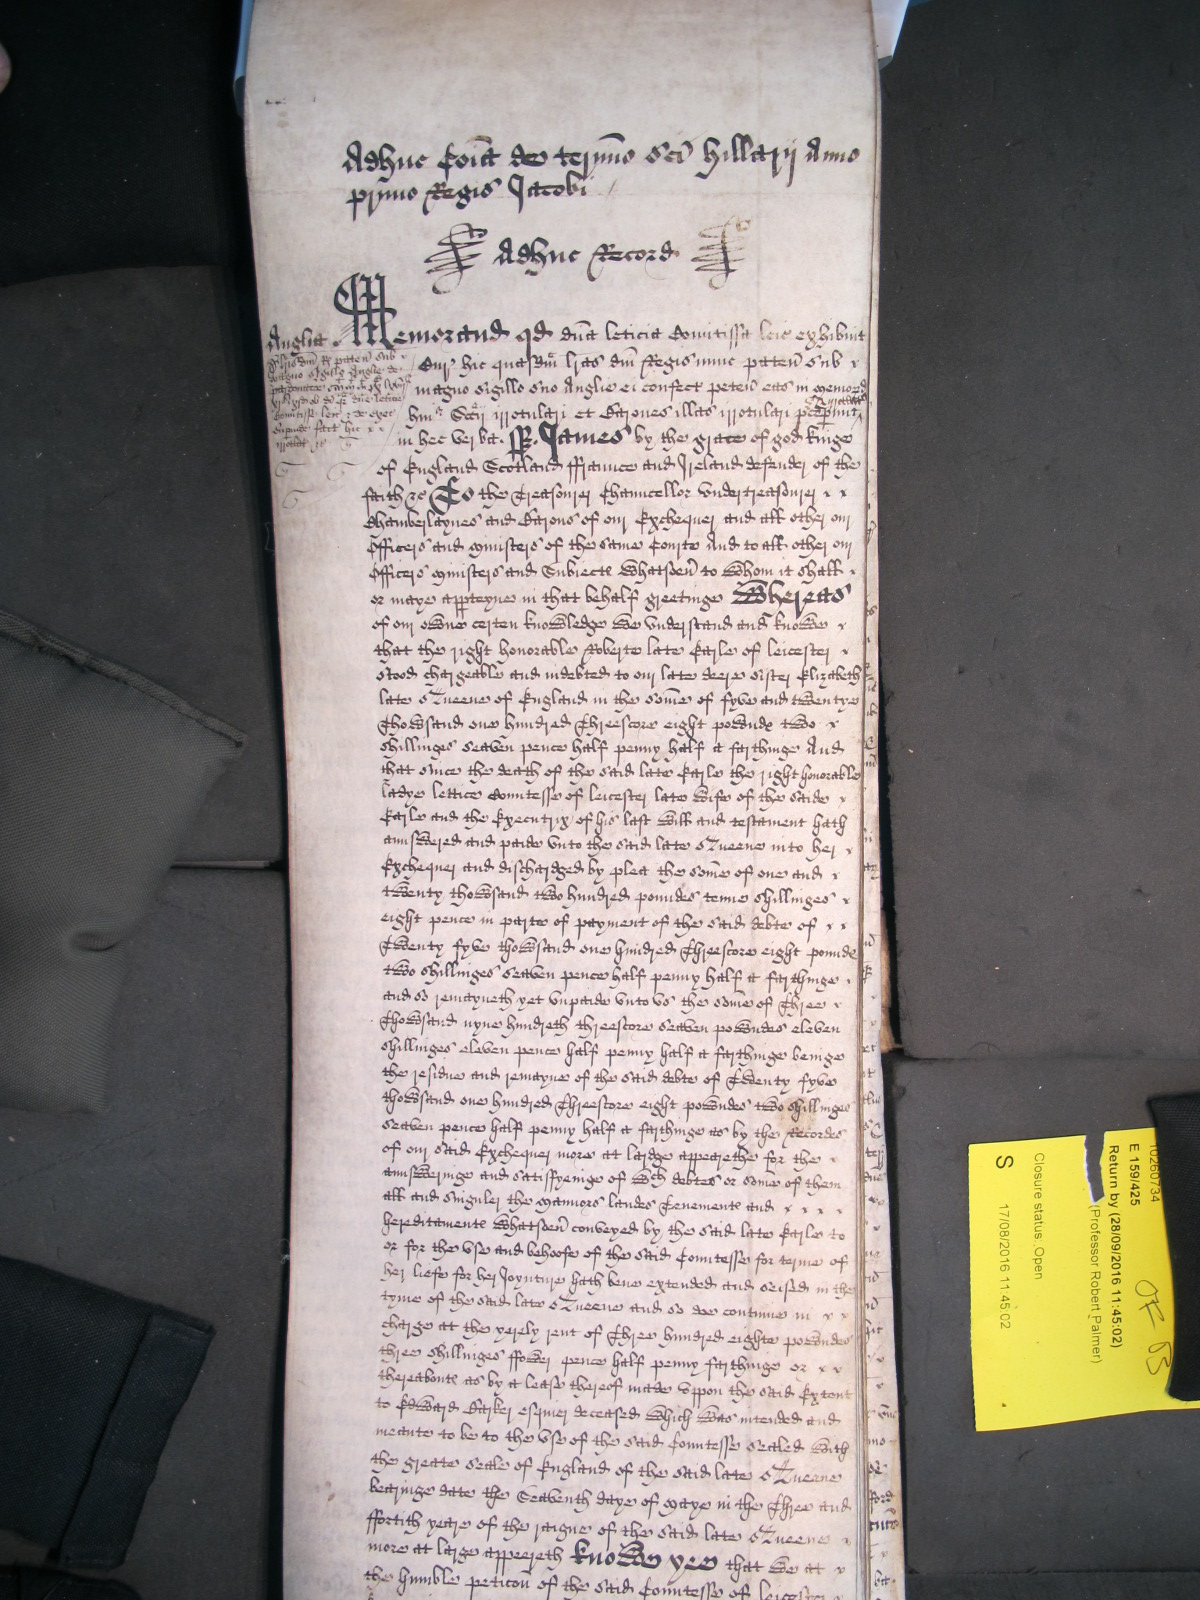 Adhuc Coia de termino Sci Hillarij Anno
primo Regis Jacobi
Adhuc Record
Anglia
Memorand qd dna leticia Comitissa leic exhibuit
Cur hic quasdm lras dm Regis nunc paten sub
magno sigillo suo Anglie ei confect peten eas in memorand
huius Sccij irrotulari et Barones illas irrotulari preceperunt
in hec verba. ss. James by the grace of god kinge
of England Scotland ffraunce and Ireland defender of the
faith &c To the Treasorer Chauncellor Undertreasorer
Chamberlaynes and Barons of our Exchequer and all other our
Officers and ministers of the same Courte And to all other our
Officers ministers and Subiects whatsoever to whom it shall
or maye apperteyne in that behalf greetinge Whereas
of our owne certen knowledge we understand and knowe
that the right honorable Roberte late Earle of leicester
stood chargeable and indebted to our late deere sister Elizabeth
late Queene of England in the some of fyve and twentye
Thowsand one hundred Threescore eight powndes two
shillinges seaven pence half penny half a farthinge And
that since the death of the said late Earle the right honorable
ladye lettice Countesse of leicester late wife of the saide
Earle and the Executrix of his last will and testament hath
aunswered and paide unto the said late Queene into her
Exchequer and dischardged by plea the some of one and
twenty thowsand two hundred poundes tenne shillinges
eight pence in parte of payment of the said debte of
Twenty fyve thowsand one hundred Threescore eight pounde
two shillinges seaven pence half penny half a farthinge
and so remayneth yet unpaide unto us the some of Three
Thowsand nyne hundreth threescore seaven powndes eleven
shillinges eleven pence half penny half a farthinge beinge
the residue and remayne of the said debte of Twenty fyve
thowsand one hundred Threescore eight powndes two shillinges
seaven pence half penny half a farthinge as by the Recordes
of our said Exchequer more at lardge appearethe for the
aunsweringe and satisfyeinge of wch debtes or some of them
all and singuler the mannors landes Tenements and
hereditaments whatsoever conveyed by the said late Earle to
or for the use and behoofe of the said Countesse for terme of
her liefe for her Joynture hath bene extended and seised in the
tyme of the said late Queene and so doe continue in
charge at the yerely rent of Three hundred eighte powndes
three shillinges ffower pence half penny farthinge or
thereabouts as by a lease thereof made uppon the said Extent
to Edward Barker esquier deceased which was intended and
meante to be to the use of the said Countesse sealed with
the greate seale of England of the said late Queene
bearinge date the Seaventh daye of maye in the Three and
ffortith yeare of the raigne of the said late Queene
more at large appeereth knowe yee that we at
the humble peticon of the said Countesse of leicester
10260734
E 159/425
Return by (28/09/2016 11:45:02)
(Professor Robert Palmer)
Closure status: Open
S 17/08/2016 11:45:02